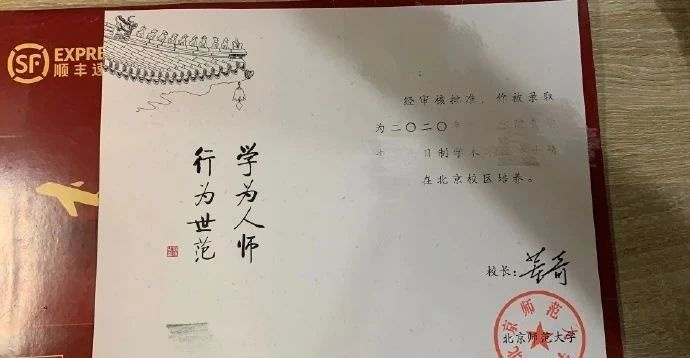 SF EXPRE
顺丰速
学为人师
行为世范
经审核批准，你被录取
为二〇二〇年
日制学术
在北京校区培养。
校长：董奇
北京师范大学
北京师范大学